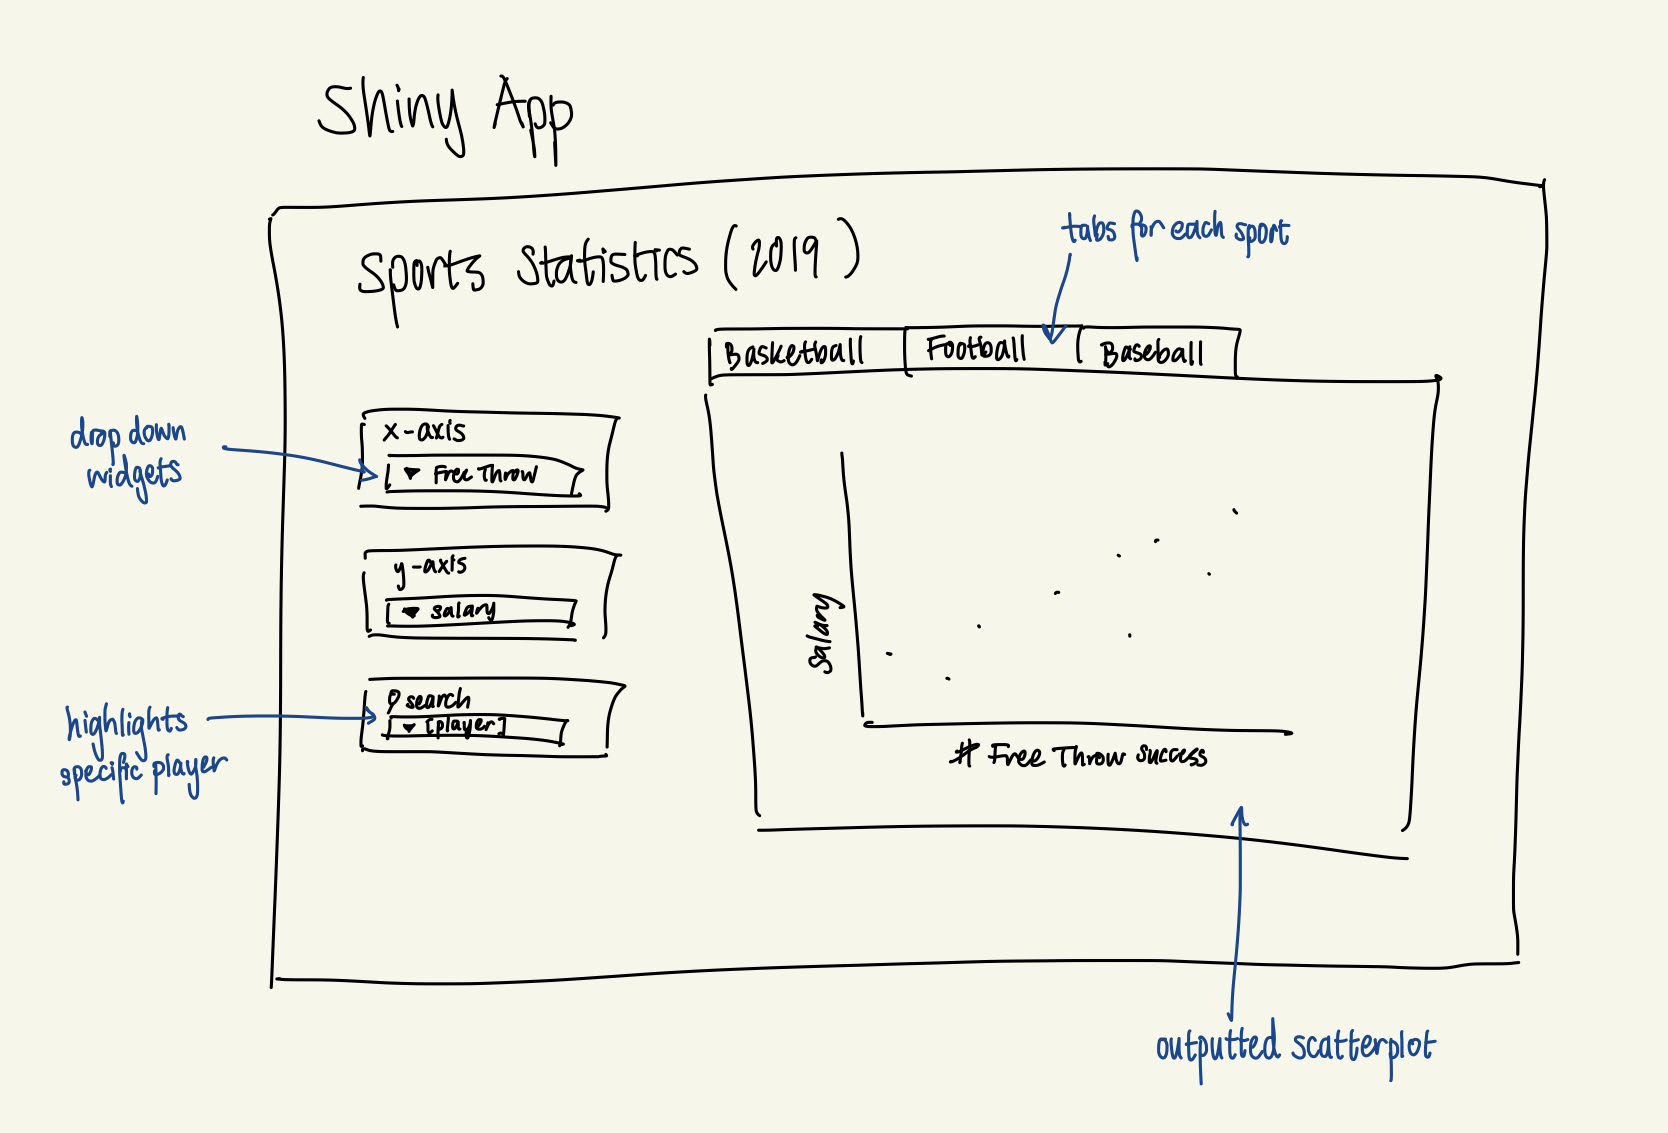 Shiny App
Sports Statistics (2019)
tabs for each sport
Basketball Football Baseball
drop down
widgets
x-axis
Free Throw
y-axis
salary
search
[player]
highlights
specific player
salary
# Free Throw success
outputted scatterplot